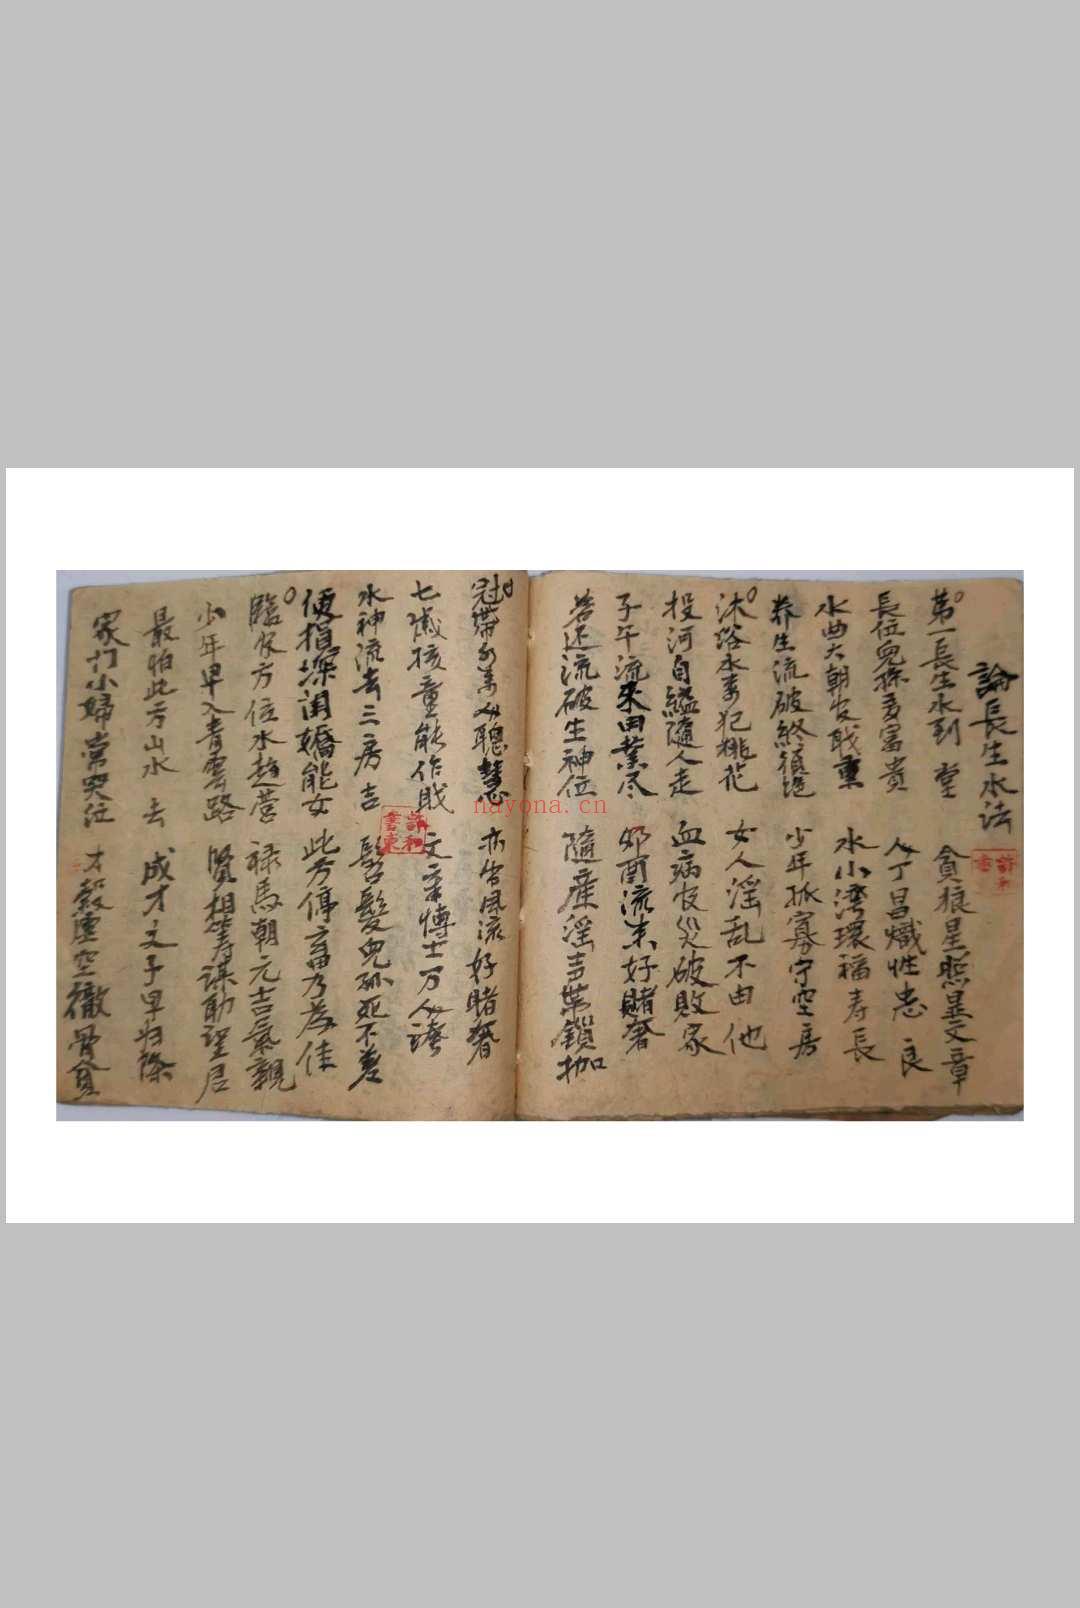 論長生水法
第一長生水到堂 貪狼星照显文章
長位兒孫多富貴 人丁昌熾性忠良
水曲大朝官职重 水小湾環福寿長
养生流破終須绝 少年孤寡守空房
沐浴水来犯桃花 女人淫乱不由他
投河自縊隨人走 血病官災破敗家
子午流來田業尽 卯酉流来好賭奢
若还流破生神位 隨産淫声帶鎖枷
冠帶水来人聰慧 亦主風流好賭奢
七歲孩童能作 文章博士万人誇
水神流去三房吉 髫髮兒孤死不差
便損深闺嬌能女 此方停蓄乃為佳
臨官方位水趋营 禄馬朝元吉氣親
少年早入青雲路 賢相筹謀助聖君
最怕此方山水去 成才之子早归陰
家门小婦常哭泣 才穀虚空徹骨貧
許和
書東
nayona.cn